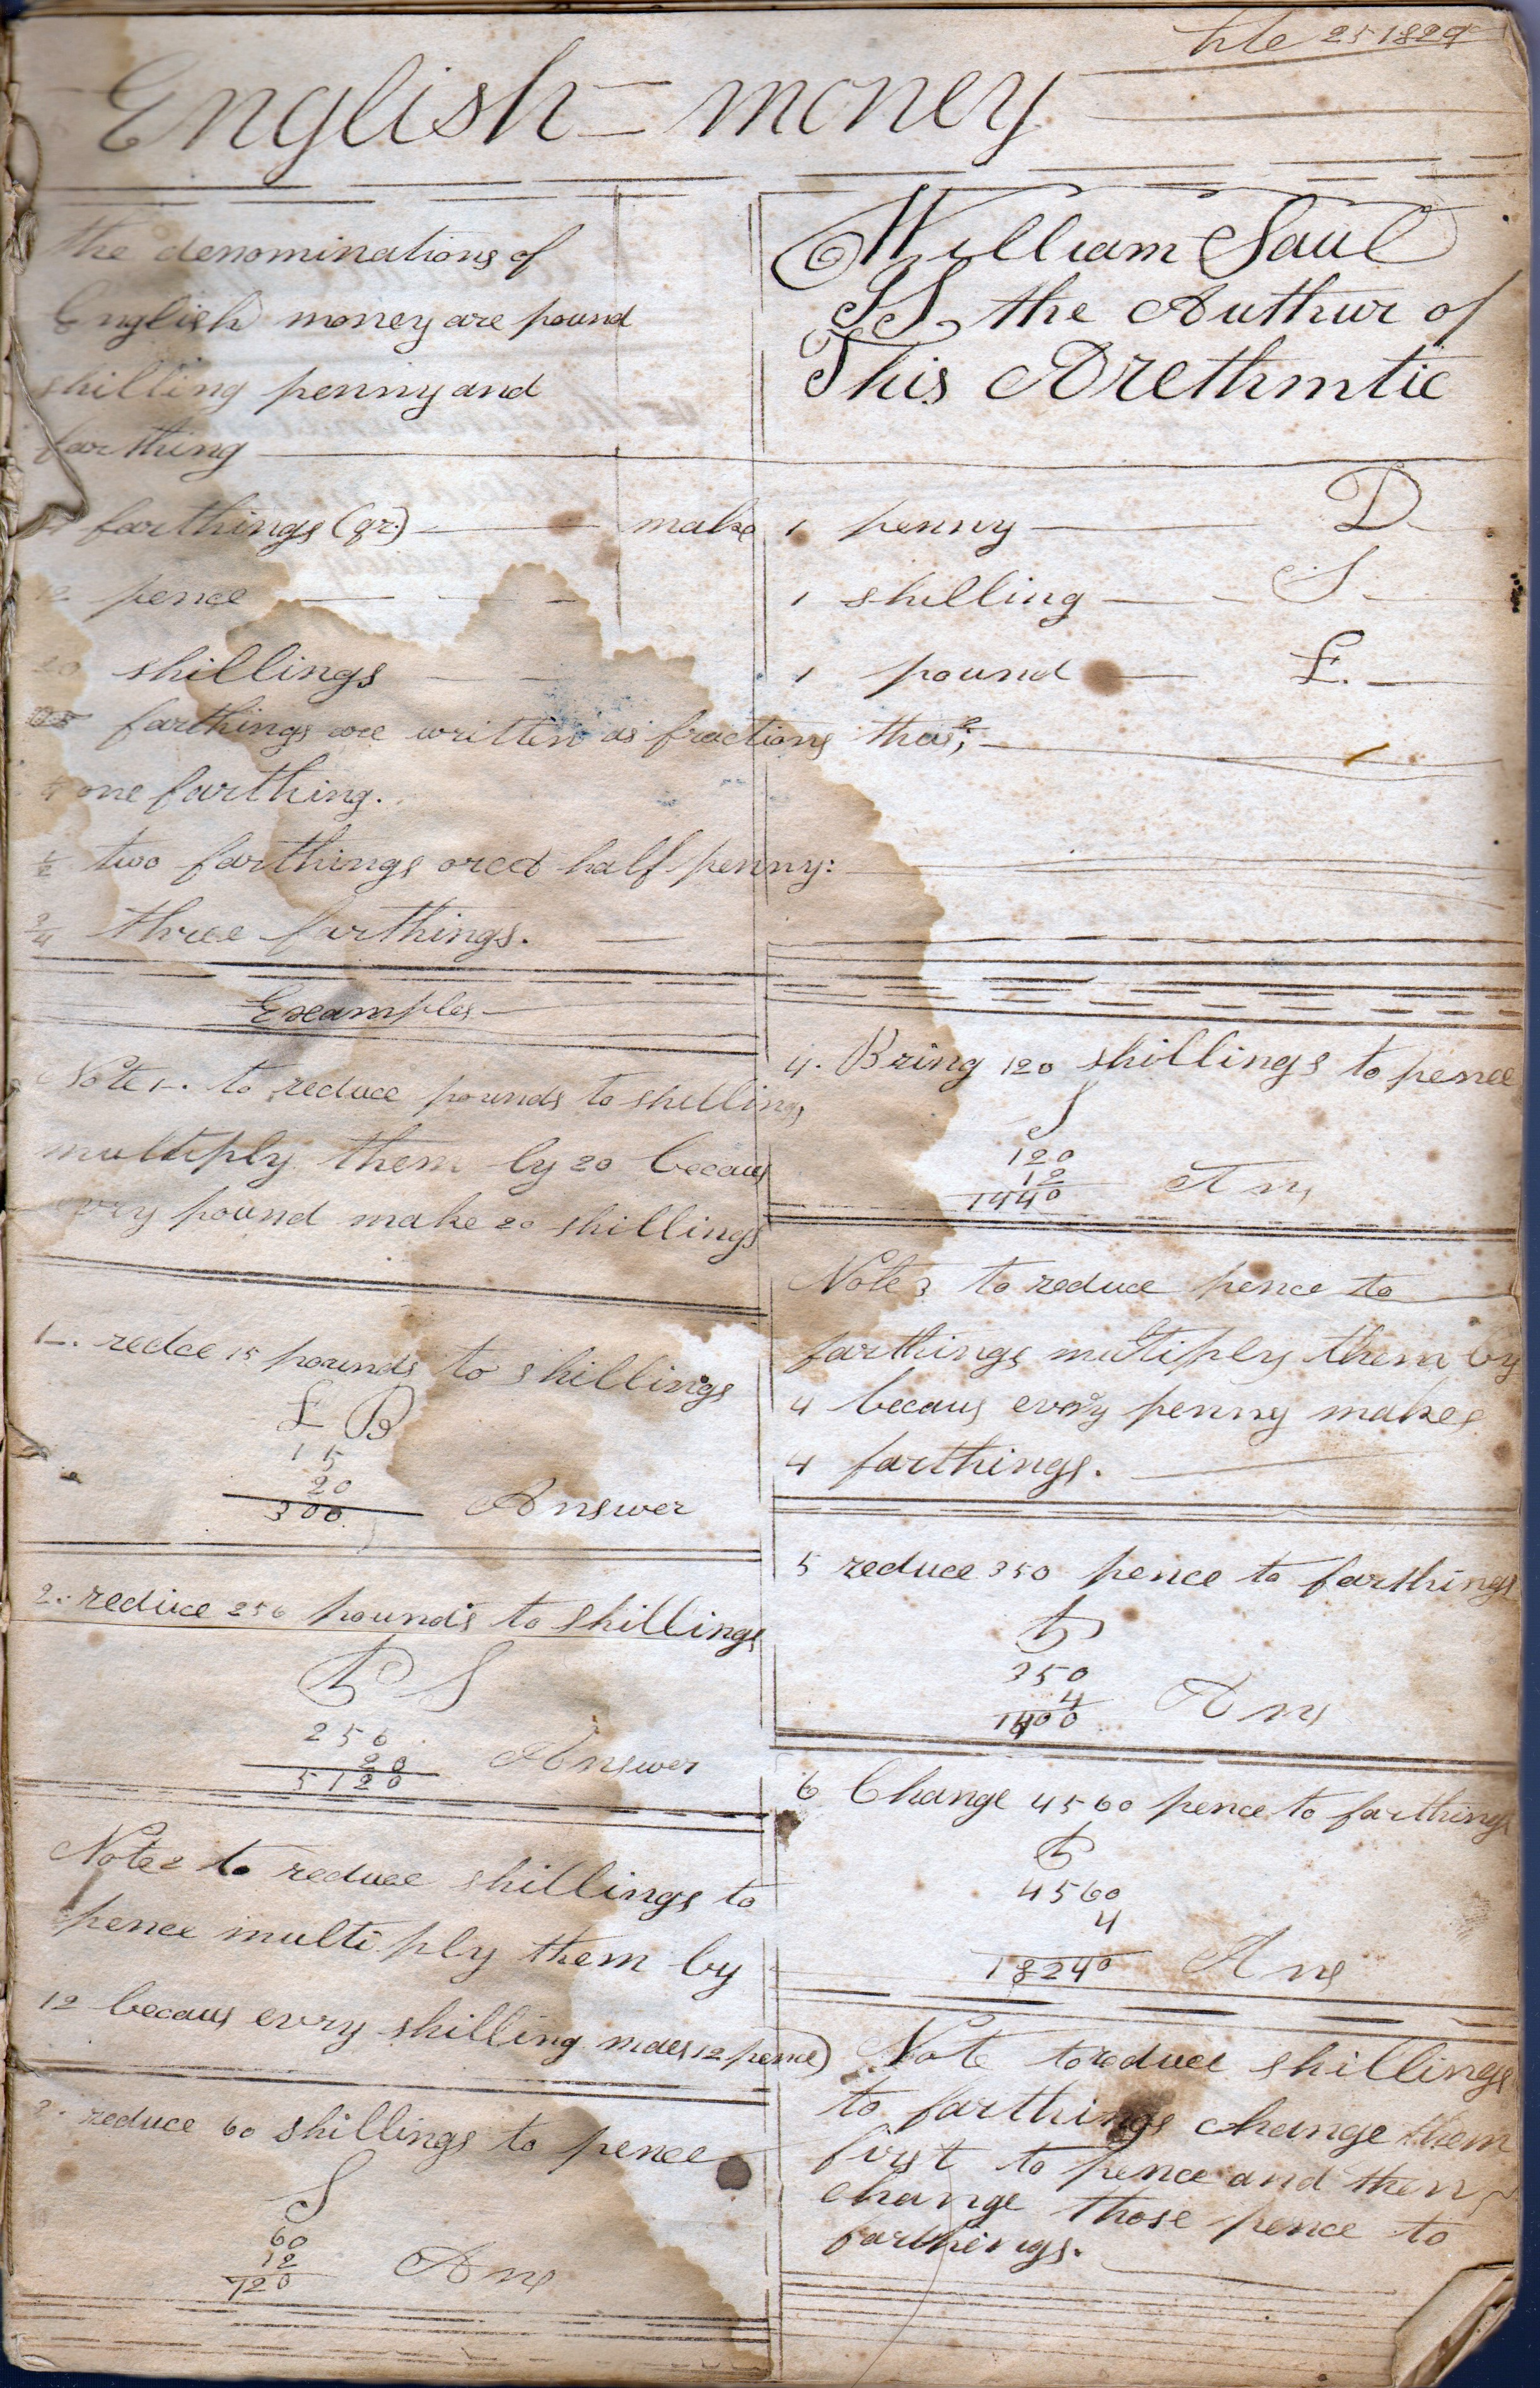 25 1829
English = money
the denominations of
English money are pound
shilling penny and
farthing
William Saul
IS the Authur of
This Arethmtic
farthings (qr.) make 1 penny D
12 pence 1 shilling S
20 shillings 1 pound £.
farthings are written as fractions thus;
one farthing.
1/2 two farthings or a half penny:
3/4 three farthings.
Examples
Note 1. to reduce pounds to shillings
multiply them by 20 becaus
evry pound make 20 shillings
1. redce 15 pounds to shillings
£
15
20
300 Answer
2. reduce 256 pounds to shillings
S
256
20
5120 Answer
Note 2 to reduce shillings to
pence multiply them by
12 becaus evry shilling maks 12 pence)
3. reduce 60 shillings to pence
S
60
12
720 Ans
4. Bring 120 shillings to pence
S
120
12
1440 Ans
Note 3 to reduce pence to
farthings multiply them by
4 becaus every penny makes
4 farthings.
5 reduce 350 pence to farthings
350
4
1400 Ans
6 Change 4560 pence to farthings
4560
4
18240 Ans
Note to reduce shillings
to farthings change them
first to pence and then
change those pence to
farthings.